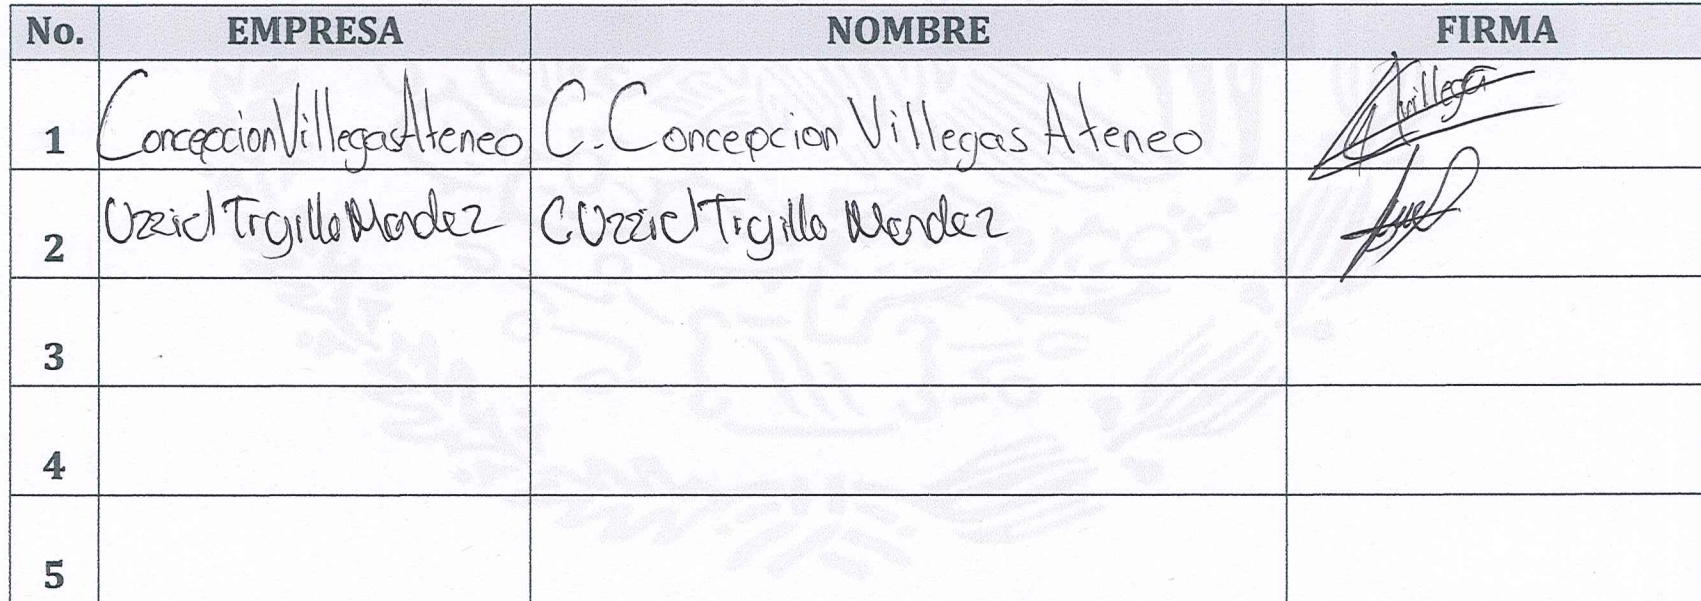 No. EMPRESA NOMBRE FIRMA
1 Concepcion Villegas Ateneo C. Concepcion Villegas Ateneo Villega
2 Uzziel Trujillo Mendez C Uzziel Trujillo Mendez
3
4
5